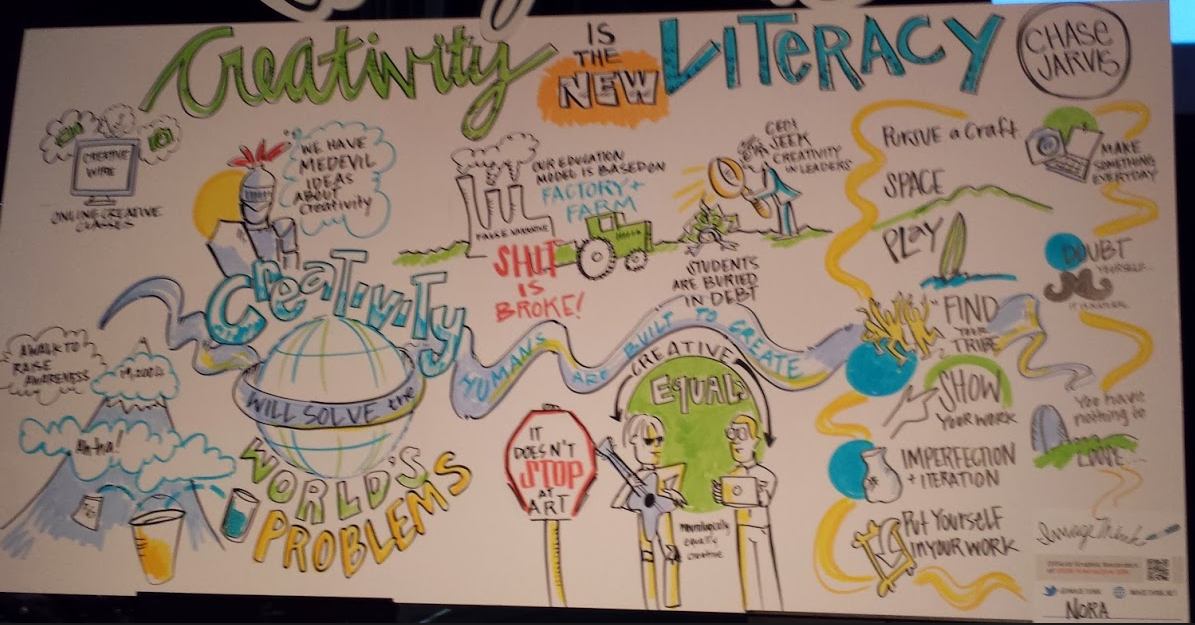 Creativity
IS
THE
NEW
LITERACY
CHASE
JARVIS
CREATIVE
ONLINE CREATIVE
CLASSES
WE HAVE
MEDEVIL
IDEAS
ABOUT
Creativity
OUR EDUCATION
MODEL IS BASED ON
FACTORY +
FARM
SHIT
IS
BROKE!
SEEK
CREATIVITY
IN LEADERS
STUDENTS
ARE BURIED
IN DEBT
Creativity
WILL SOLVE the
WORLD'S
PROBLEMS
A WALK TO
RAISE
AWARENESS
Ah-ha!
HUMANS ARE BUILT TO CREATE
IT
DOESN'T
STOP
AT
ART
CREATIVE
EQUALS
creative
PURSUE a CRAFT
SPACE
PLAY
FIND
YOUR
TRIBE
SHOW
YOUR WORK
IMPERFECTION
+ ITERATION
PUT YOURSELF
IN YOUR WORK
MAKE
SOMETHING
EVERYDAY
DOUBT
YOURSELF...
You have
nothing to
LOOSE...
ImageThink
NORA